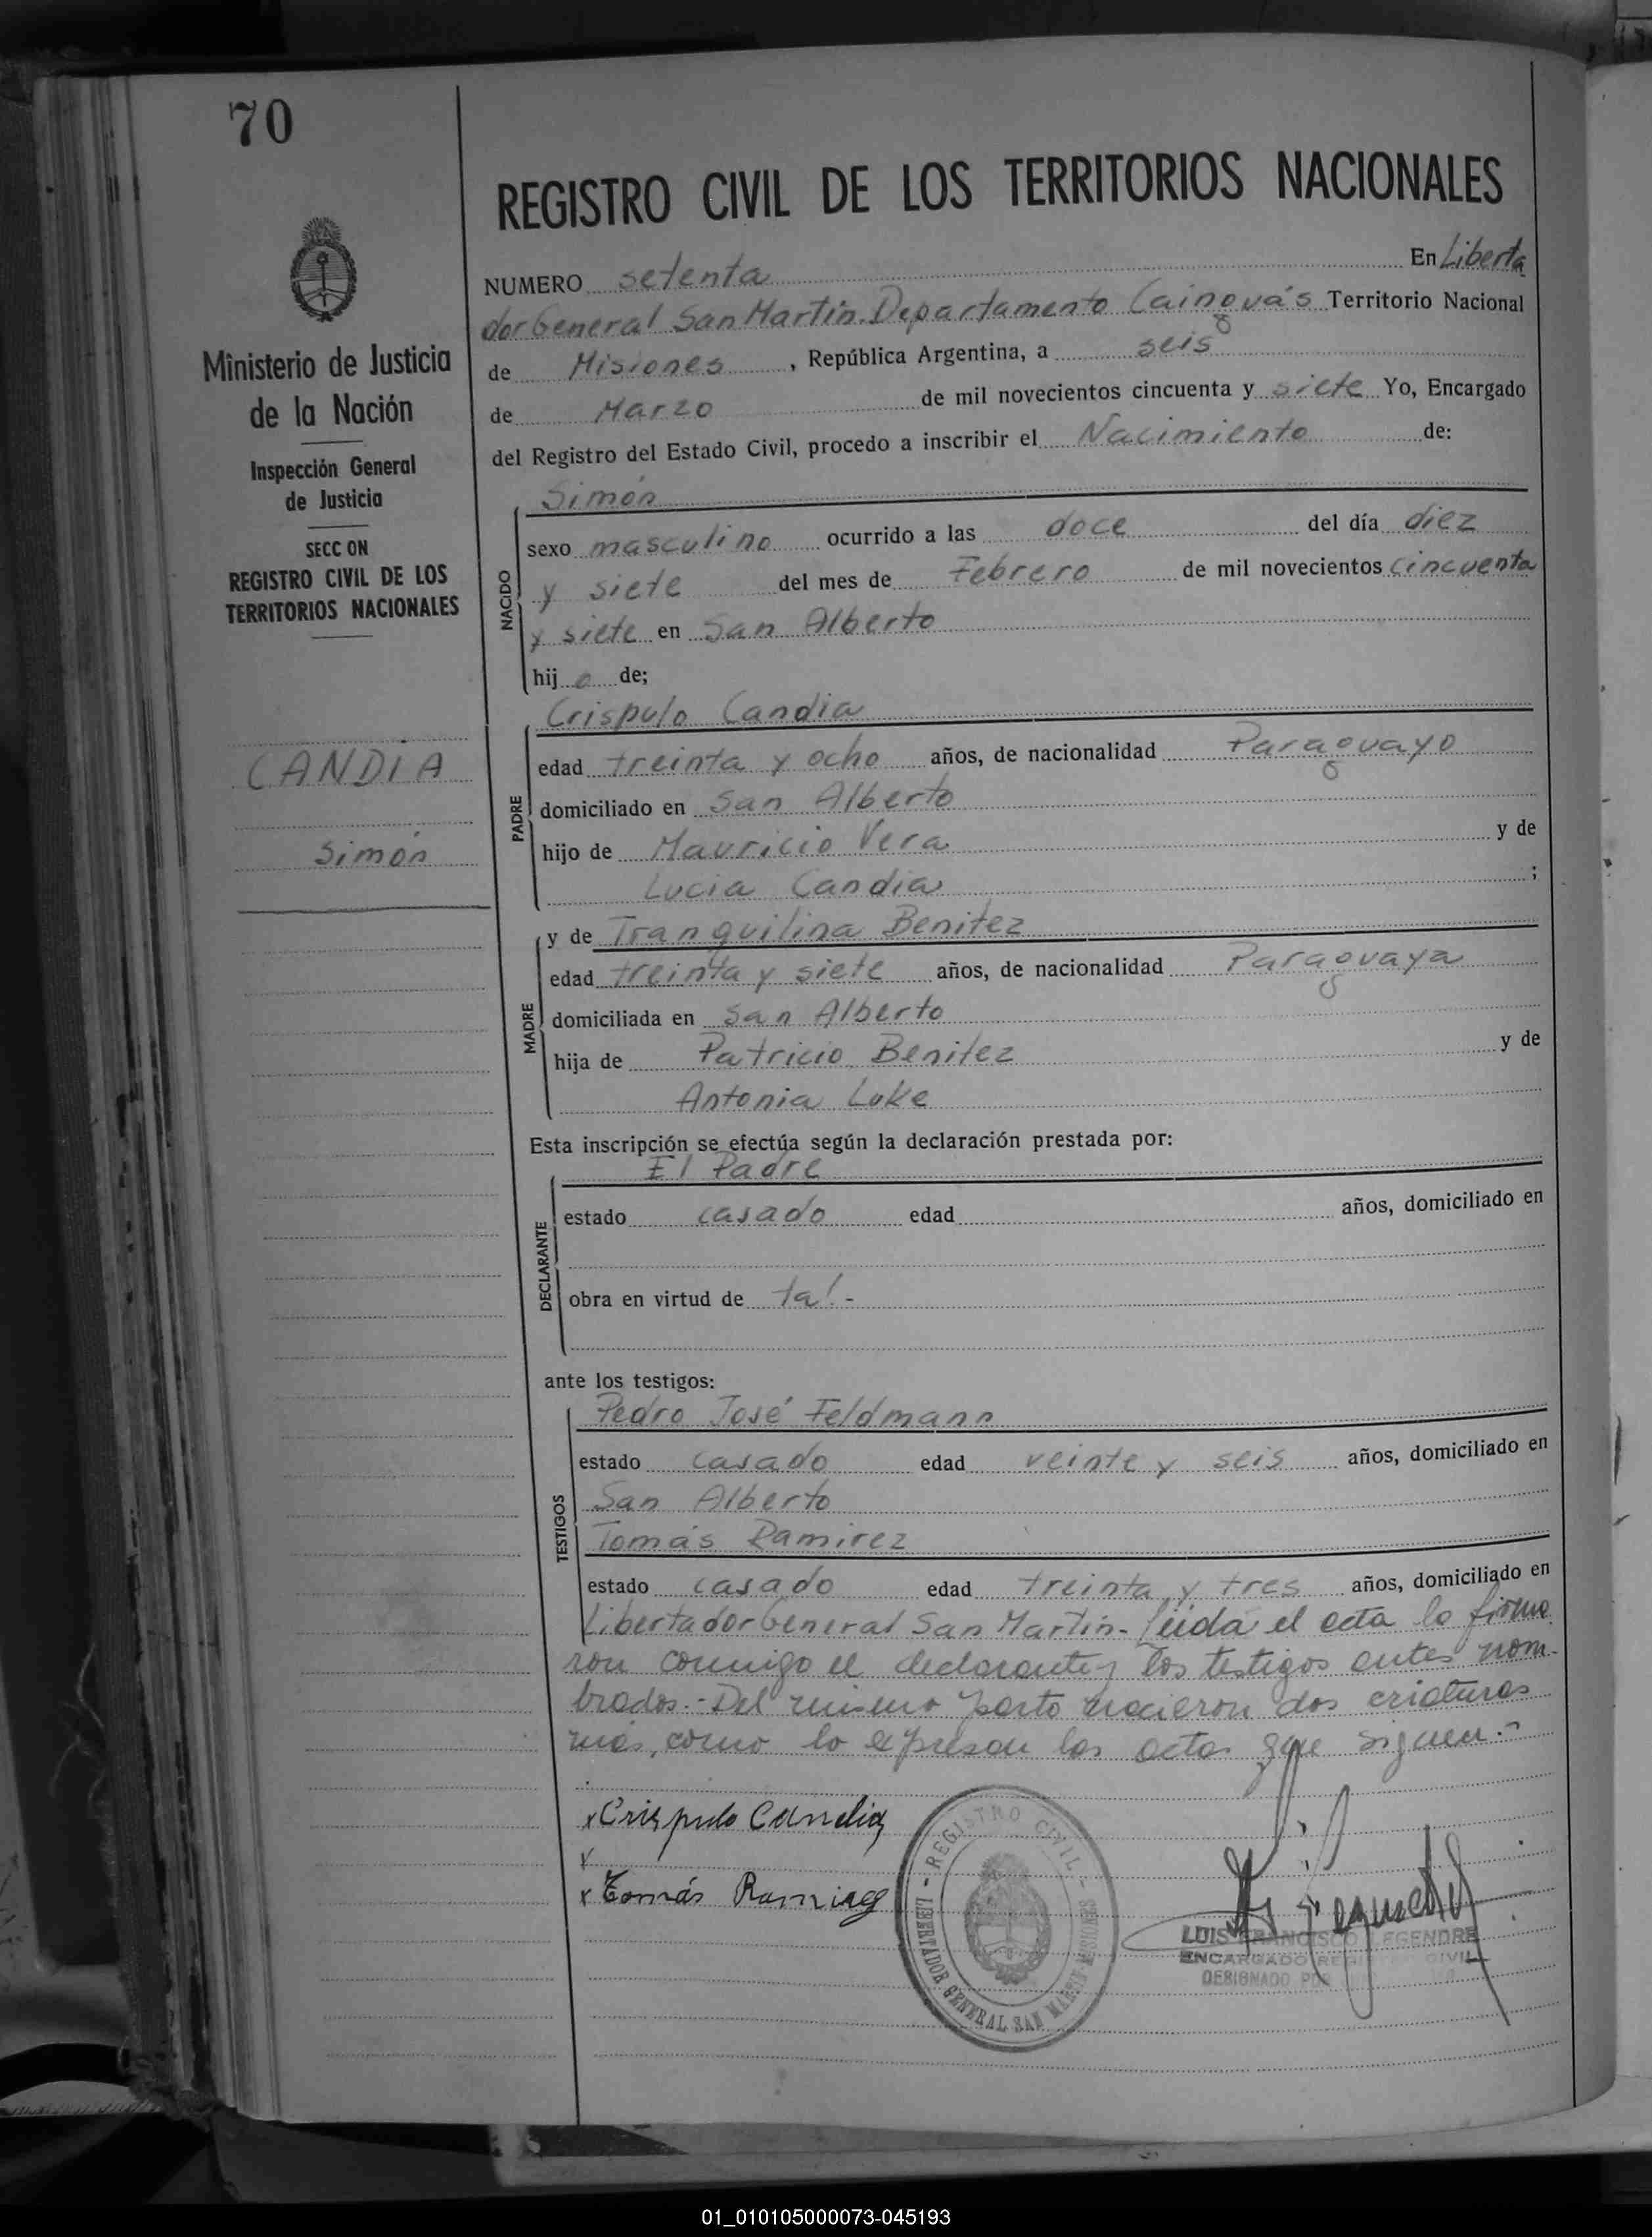 70
REGISTRO CIVIL DE LOS TERRITORIOS NACIONALES
Ministerio de Justicia
de la Nación
Inspección General
de Justicia
SECC ON
REGISTRO CIVIL DE LOS
TERRITORIOS NACIONALES
CANDIA
Simón
NUMERO setenta En Liberta
dor General San Martin. Departamento Cainguás Territorio Nacional
de Misiones, República Argentina, a seis
de Marzo de mil novecientos cincuenta y siete Yo, Encargado
del Registro del Estado Civil, procedo a inscribir el Nacimiento de:
Simón
NACIDO
sexo masculino ocurrido a las doce del día diez
y siete del mes de Febrero de mil novecientos cincuenta
y siete en San Alberto
hijo de;
Crispulo Candia
PADRE
edad treinta y ocho años, de nacionalidad Paraguayo
domiciliado en San Alberto
hijo de Mauricio Vera y de
Lucia Candia ;
y de Tranquilina Benitez
MADRE
edad treinta y siete años, de nacionalidad Paraguaya
domiciliada en San Alberto
hija de Patricio Benitez y de
Antonia Luke
Esta inscripción se efectúa según la declaración prestada por:
El Padre
DECLARANTE
estado casado edad años, domiciliado en
obra en virtud de tal.-
ante los testigos:
Pedro José Feldmann
TESTIGOS
estado casado edad veinte y seis años, domiciliado en
San Alberto
Tomás Ramirez
estado casado edad treinta y tres años, domiciliado en
Libertador General San Martin.- Leída el acta la firma
ron conmigo el declarante y los testigos antes nom-
brados.- Del mismo parto nacieron dos criaturas
más, como lo expresan las actas que siguen.-
x Crispulo Candia
x
x Tomás Ramirez
REGISTRO CIVIL
LIBERTADOR GENERAL SAN MARTIN MISIONES
LUIS FRANCISCO LEGENDRE
ENCARGADO REGISTRO CIVIL
DESIGNADO POR
01_010105000073-045193